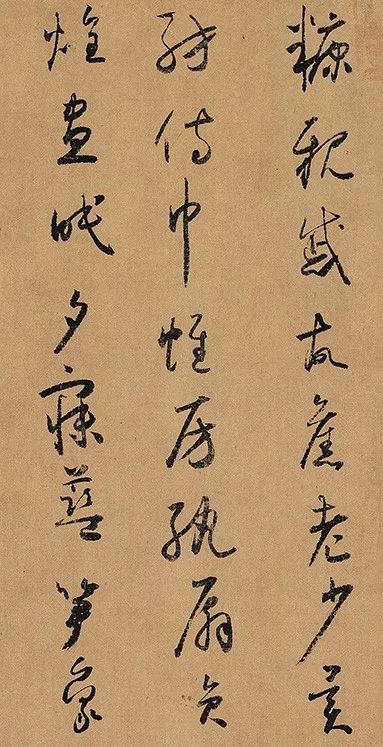 糠親戚故舊老少異
紡侍巾帷房紈扇員
煌晝眠夕寐藍筍象